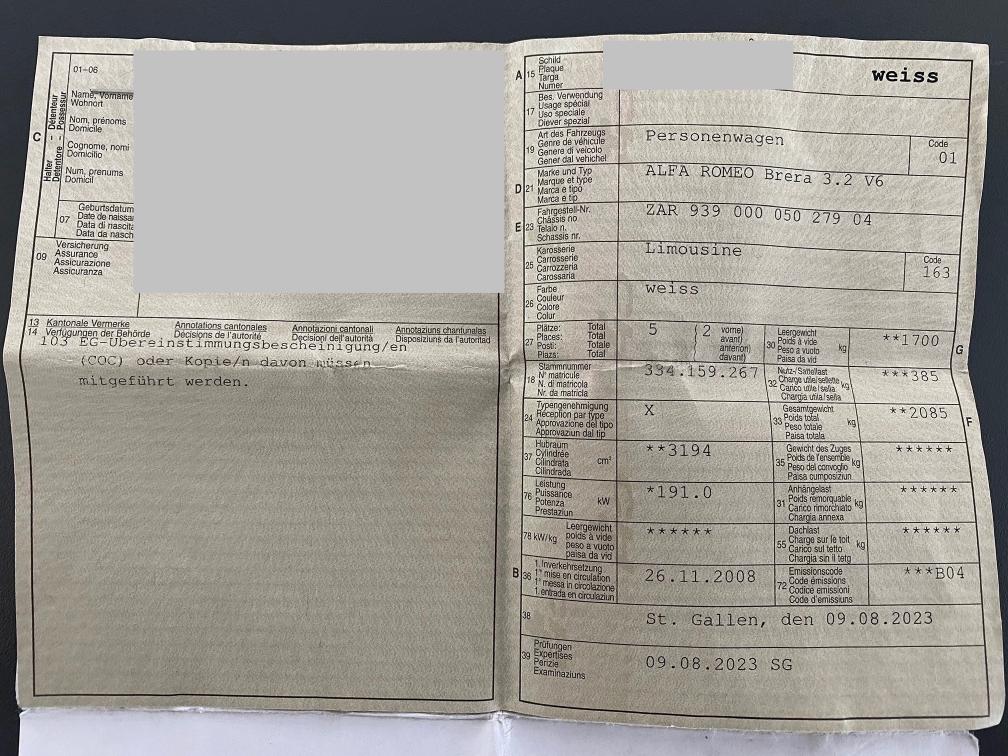 01-06
C
Détenteur
Possessur
Halter
Detentore
Name, Vorname
Wohnort
Nom, prénoms
Domicile
Cognome, nomi
Domicilio
Num, prenums
Domicil
07
Geburtsdatum
Date de naissa
Data di nascita
Data da nasch
09
Versicherung
Assurance
Assicurazione
Assicuranza
13 Kantonale Vermerke Annotations cantonales Annotazioni cantonali Annotaziuns chantunalas
14 Verfügungen der Behörde Décisions de l'autorité Decisioni dell'autorità Disposiziuns da l'autoritad
103 EG-Übereinstimmungsbescheinigung/en
(COC) oder Kopie/n davon müssen
mitgeführt werden.
A 15
Schild
Plaque
Targa
Numer
weiss
17
Bes. Verwendung
Usage spécial
Uso speciale
Diever spezial
19
Art des Fahrzeugs
Genre de véhicule
Genere di veicolo
Gener dal vehichel
Personenwagen
Code
01
D 21
Marke und Typ
Marque et type
Marca e tipo
Marca e tip
ALFA ROMEO Brera 3.2 V6
E 23
Fahrgestell-Nr.
Châssis no
Telaio n.
Schassis nr.
ZAR 939 000 050 279 04
25
Karosserie
Carrosserie
Carrozzeria
Carossaria
Limousine
Code
163
26
Farbe
Couleur
Colore
Colur
weiss
27
Plätze: Total
Places: Total
Posti: Totale
Plazs: Total
5 (2
vorne)
avant)
anteriori)
davant)
30
Leergewicht
Poids à vide
Peso a vuoto
Paisa da vid
kg
**1700
G
18
Stammnummer
N° matricule
N. di matricola
Nr. da matricla
334.159.267
32
Nutz-/Sattellast
Charge utile/sellette
Carico utile/sella
Chargia utila/sella
kg
***385
24
Typengenehmigung
Réception par type
Approvazione del tipo
Approvaziun dal tip
X
33
Gesamtgewicht
Poids total
Peso totale
Paisa totala
kg
**2085
F
37
Hubraum
Cylindrée
Cilindrata
Cilindrada
cm³
**3194
35
Gewicht des Zuges
Poids de l'ensemble
Peso del convoglio
Paisa cumposiziun
kg
******
76
Leistung
Puissance
Potenza
Prestaziun
kW
*191.0
31
Anhängelast
Poids remorquable
Carico rimorchiato
Chargia annexa
kg
******
78 kW/kg
Leergewicht
poids à vide
peso a vuoto
paisa da vid
******
55
Dachlast
Charge sur le toit
Carico sul tetto
Chargia sin il tetg
kg
******
B 36
1. Inverkehrsetzung
1re mise en circulation
1a messa in circolazione
1. entrada en circulaziun
26.11.2008
72
Emissionscode
Code émissions
Codice emissioni
Code d'emissiuns
***B04
38
St. Gallen, den 09.08.2023
39
Prüfungen
Expertises
Perizie
Examinaziuns
09.08.2023 SG